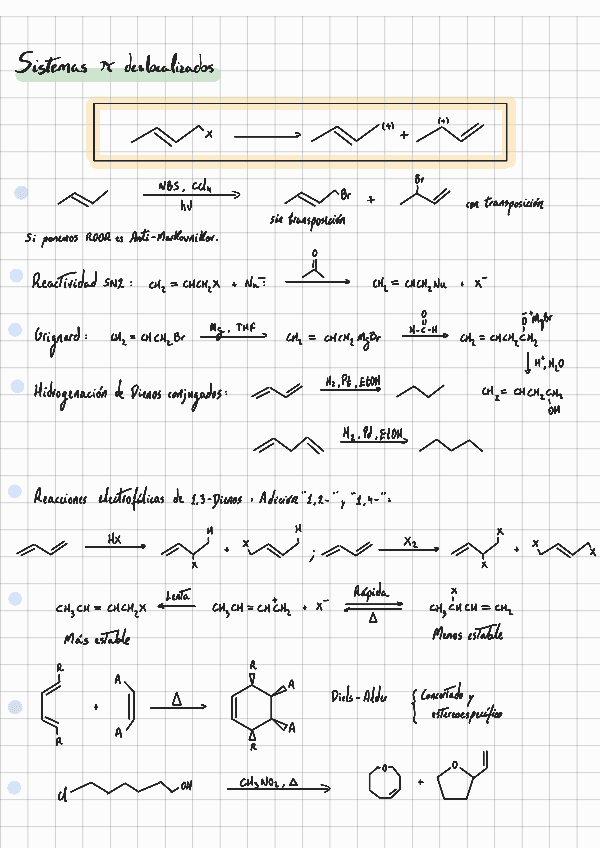 Sistemas π deslocalizados
X → (+) + (+)
NBS, CCl₄
hν
Br + Br con transposición
sin transposición
Si ponemos ROOR es Anti-Markovnikov.
Reactividad SN2: CH₂ = CHCH₂X + Nu⁻: O → CH₂ = CHCH₂Nu + X⁻
Grignard: CH₂ = CHCH₂Br Mg, THF → CH₂ = CHCH₂MgBr O H-C-H → CH₂ = CHCH₂CH₂ O⁻⁺MgBr
↓ H⁺, H₂O
CH₂ = CHCH₂CH₂ OH
Hidrogenación de Dienos conjugados: H₂, Pt, EtOH
H₂, Pd, EtOH
Reacciones electrofílicas de 1,3-Dienos. Adición "1,2-" y "1,4-":
HX → H X + X H ; X₂ → X X + X X
CH₃CH = CHCH₂X ← Lenta CH₃CH = CHCH₂⁺ + X⁻ Rápida Δ CH₃CHCH = CH₂ X
Más estable Menos estable
R R + A A Δ → R A A R Diels-Alder { Concertado y
estereoespecífico
Cl OH CH₃NO₂, Δ → O + O